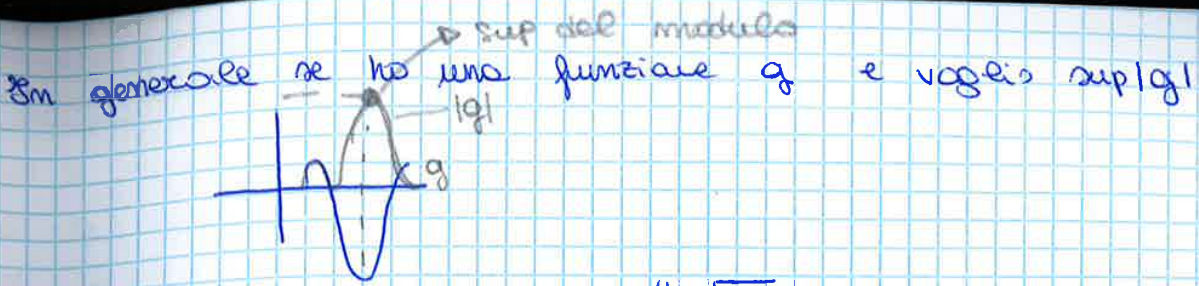 sup del modulo
In generale se ho una funzione g e voglio sup|g|
|g|
g